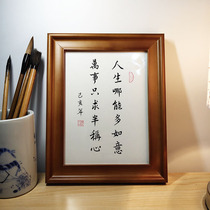 人生哪能多如意
萬事只求半稱心
己亥年